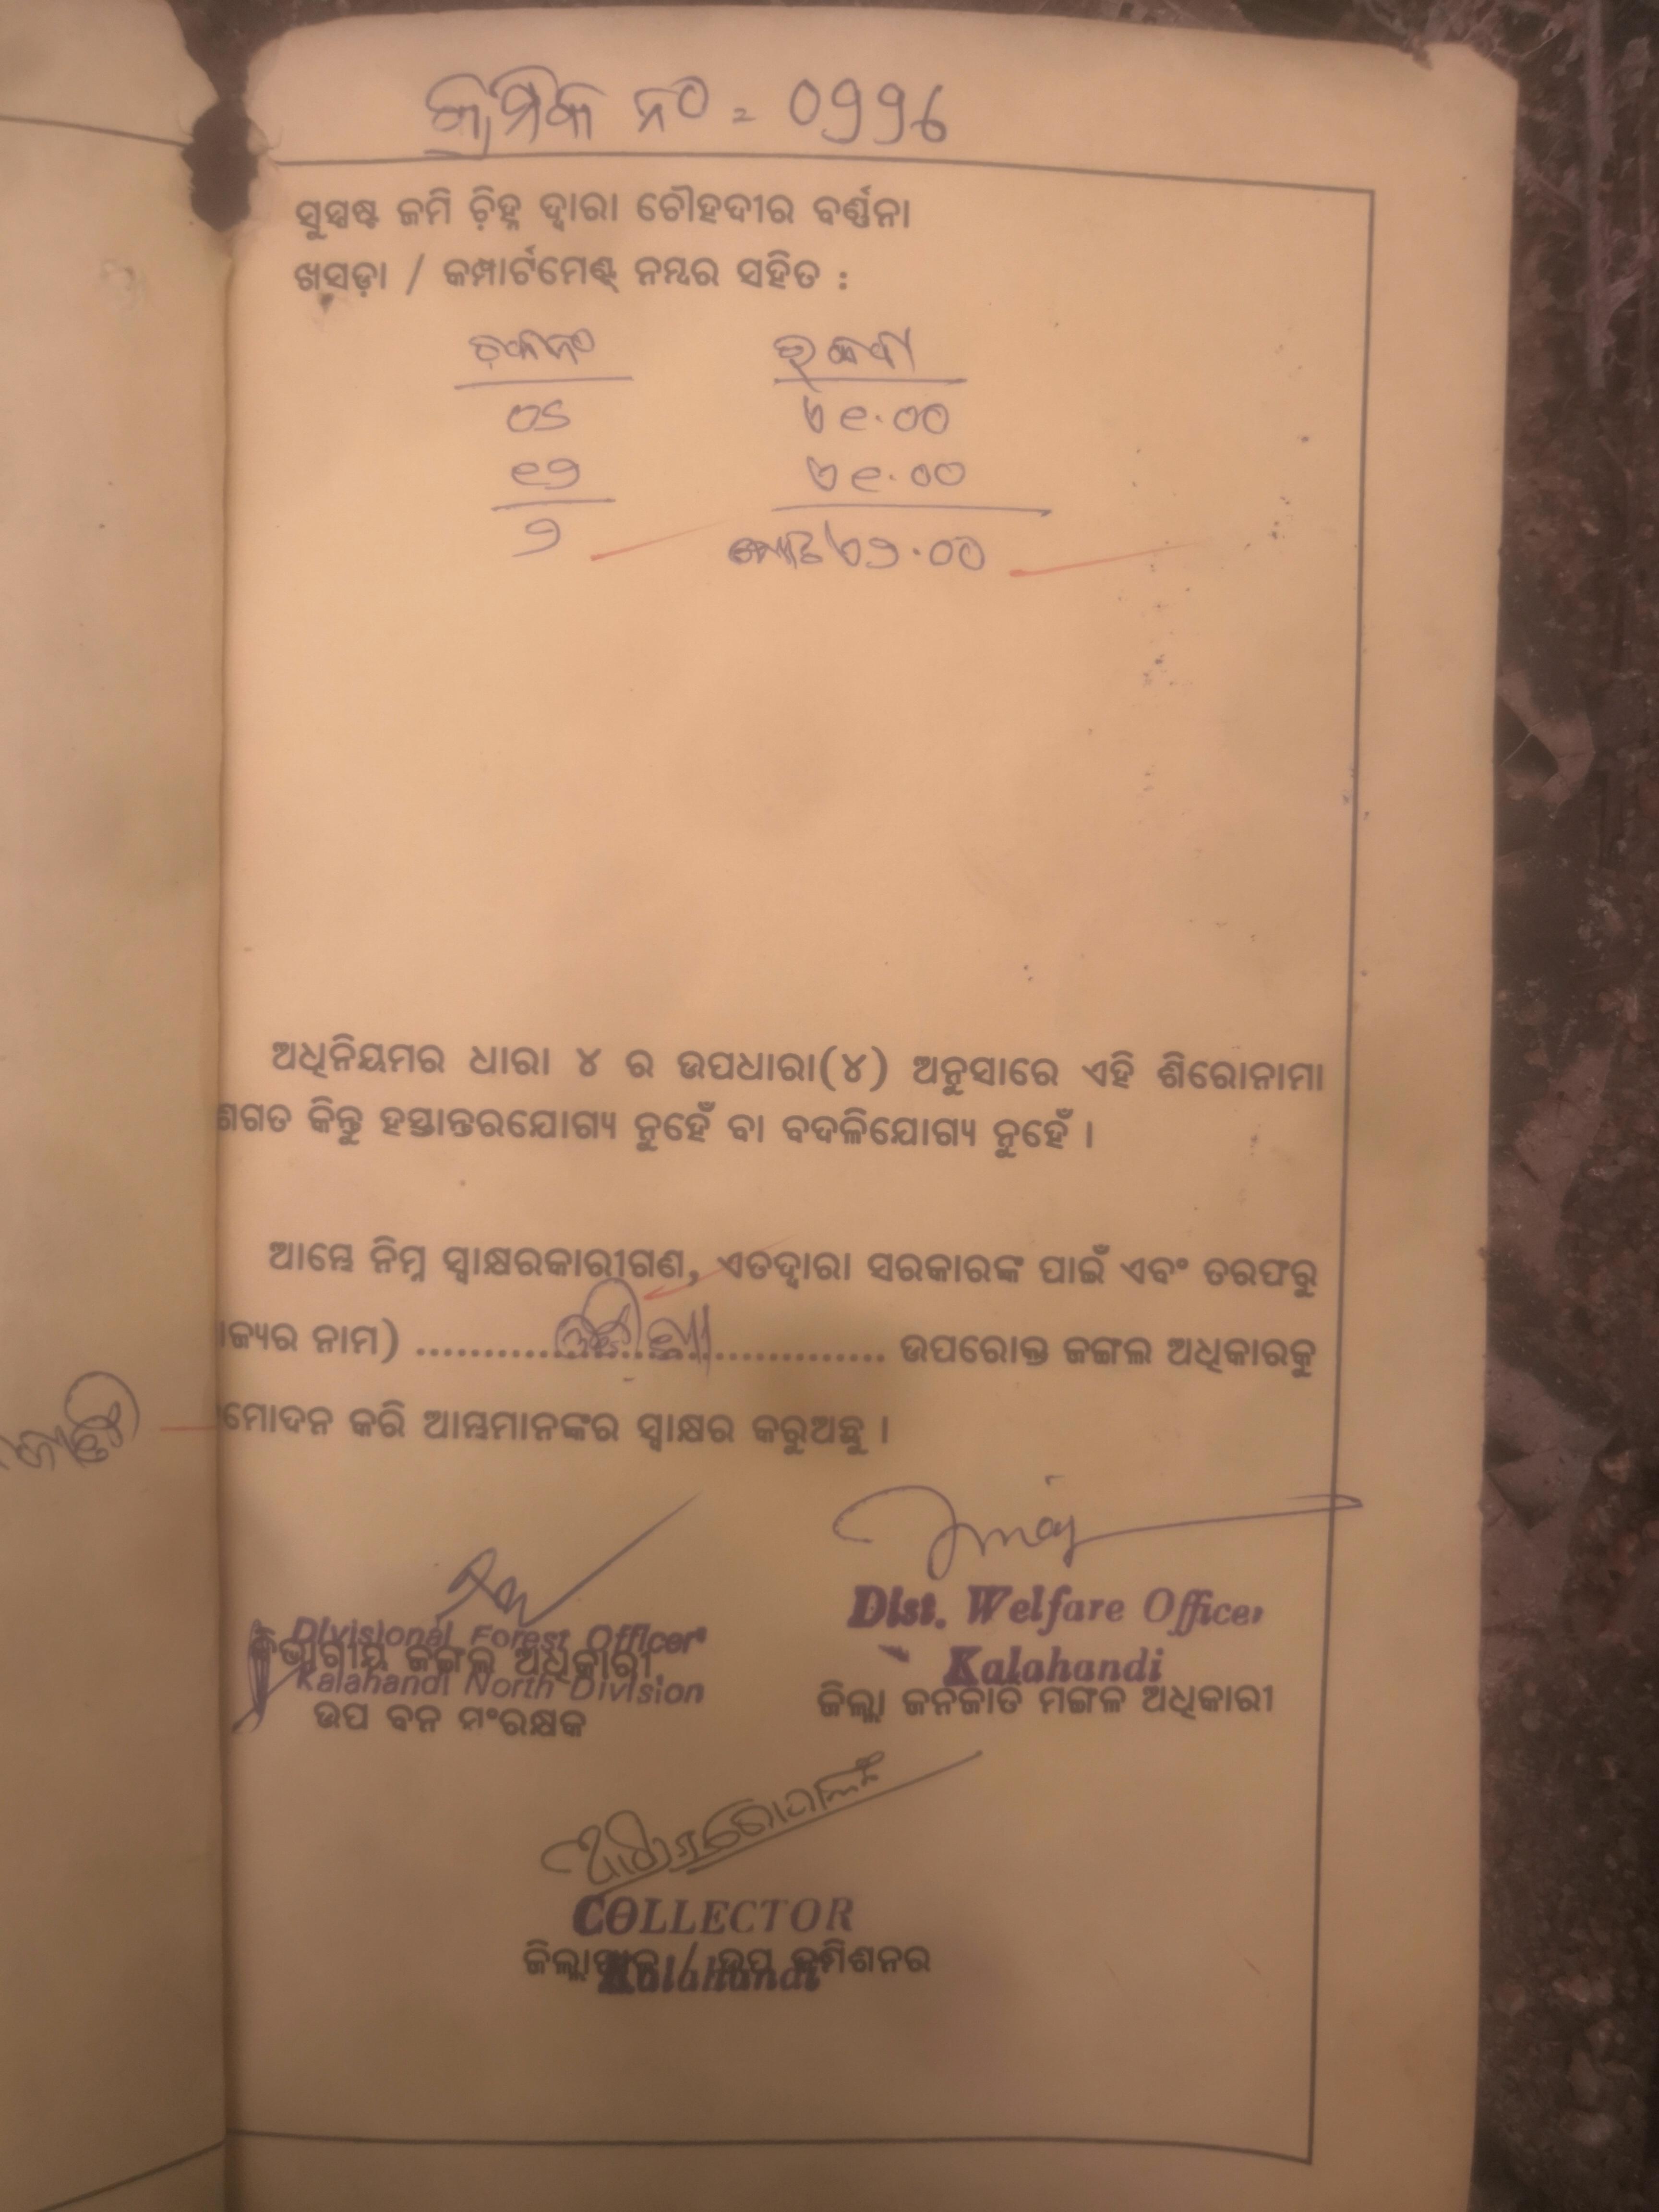 କ୍ରମିକ ନଂ = ୦୨୨୬
ସୁସ୍ପଷ୍ଟ ଜମି ଚ଼ିହ୍ନ ଦ୍ଵାରା ଚୌହଦୀର ବର୍ଣ୍ଣନା
ଖସଡ଼ା / କମ୍ପାର୍ଟମେଣ୍ଟ୍ ନମ୍ବର ସହିତ :
୦୫ ଏ ୧.୦୦
୧୨ ଏ ୧.୦୦
୨ ମୋଟ ଏ ୨.୦୦
ଅଧିନିୟମର ଧାରା ୪ ର ଉପଧାରା(୪) ଅନୁସାରେ ଏହି ଶିରୋନାମା
ଣଗତ କିନ୍ତୁ ହସ୍ତାନ୍ତରଯୋଗ୍ୟ ନୁହେଁ ବା ବଦଳିଯୋଗ୍ୟ ନୁହେଁ ।
ଆମ୍ଭେ ନିମ୍ନ ସ୍ୱାକ୍ଷରକାରୀଗଣ, ଏତଦ୍ଵାରା ସରକାରଙ୍କ ପାଇଁ ଏବଂ ତରଫରୁ
ଜ୍ୟର ନାମ) ଓଡ଼ିଶା ଉପରୋକ୍ତ ଜଙ୍ଗଲ ଅଧିକାରକୁ
ମୋଦନ କରି ଆମ୍ଭମାନଙ୍କର ସ୍ୱାକ୍ଷର କରୁଅଛୁ ।
Divisional Forest Officer
ବିଭାଗୀୟ ଜଙ୍ଗଲ ଅଧିକାରୀ
Kalahandi North Division
ଉପ ବନ ସଂରକ୍ଷକ
Dist. Welfare Officer
Kalahandi
ଜିଲ୍ଲା ଜନଜାତି ମଙ୍ଗଳ ଅଧିକାରୀ
COLLECTOR
ଜିଲ୍ଲାପାଳ / ଉପ କମିଶନର
Kalahandi